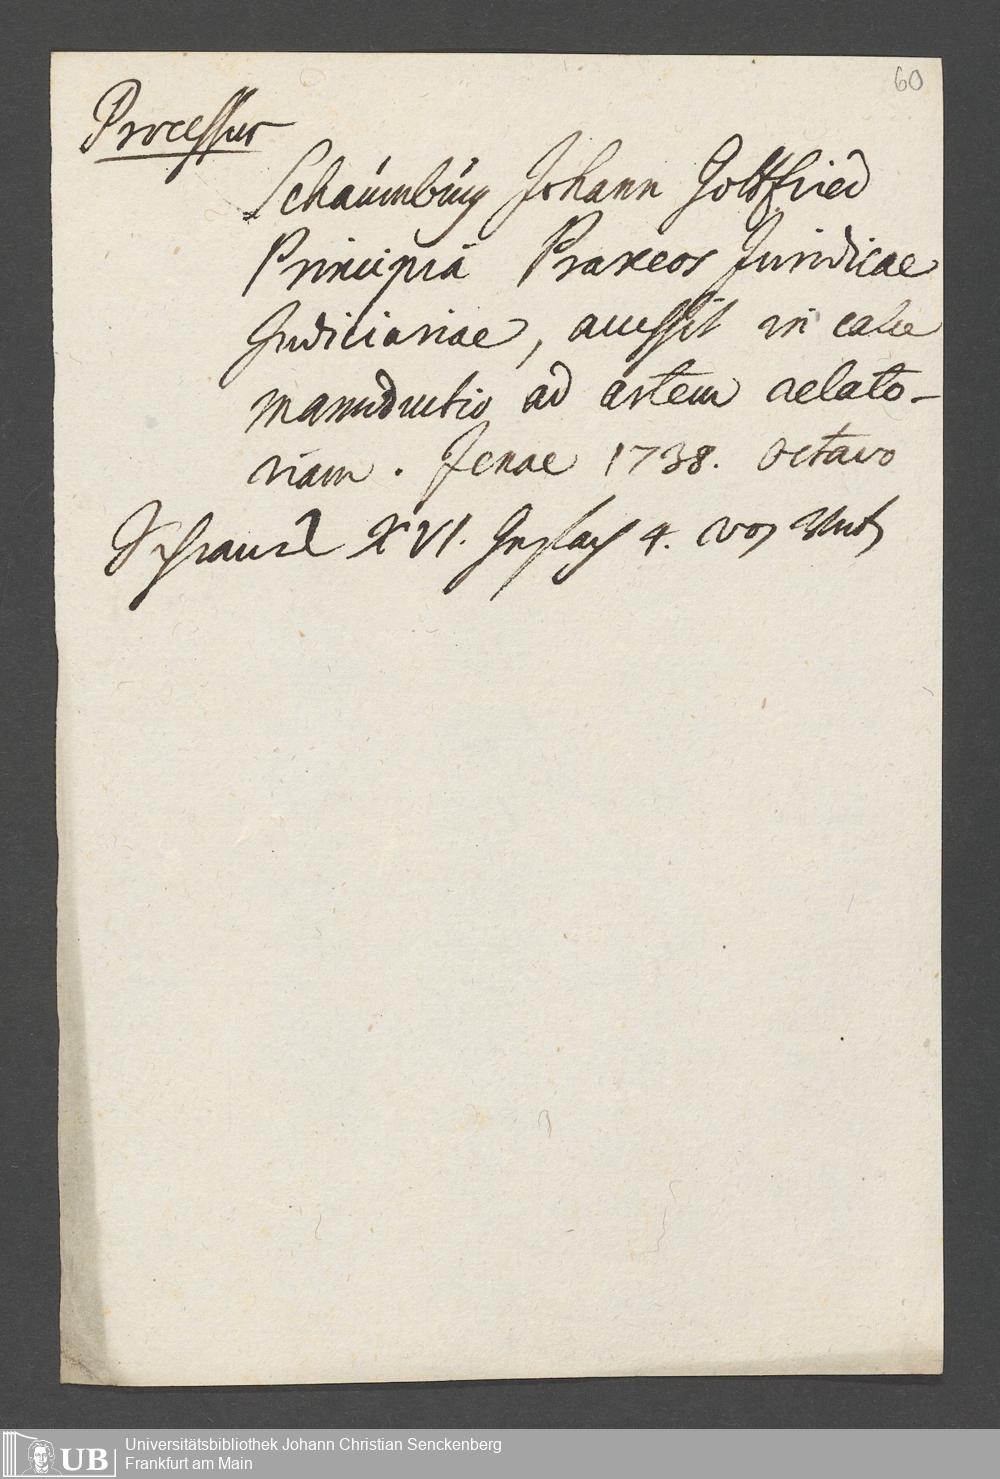 60
Processus
Schaumburg Johann Gottfried
Principia Praxeos Juridicae
Judiciariae, accessit in calce
manuductio ad artem relato-
riam. Jenae 1738. octavo
Schranck XVI. Gefach 4. vor
UB
Universitätsbibliothek Johann Christian Senckenberg
Frankfurt am Main